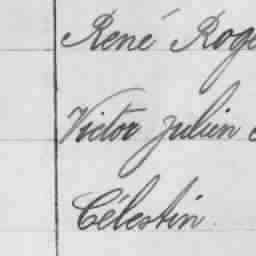 René Roge
Victor Julien
Célestin